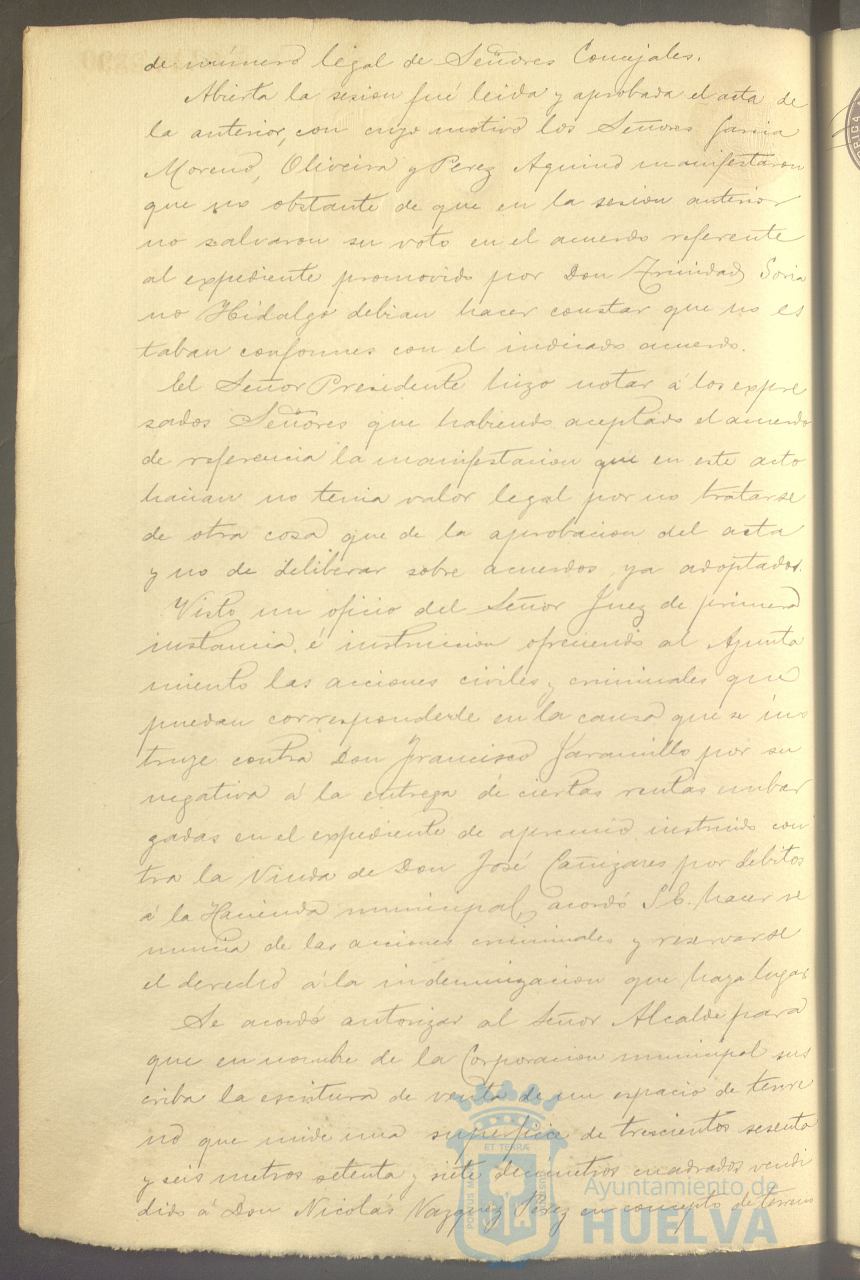 de número legal de Señores Concejales.
Abierta la sesion fué leida y aprobada el acta de
la anterior, con cuyo motivo los Señores Garcia
Moreno, Oliveira y Perez Aquino manifestaron
que no obstante de que en la sesion anterior
no salvaron su voto en el acuerdo referente
al expediente promovido por Don Trinidad Soria
no Hidalgo debian hacer constar que no es
taban conformes con el indicado acuerdo.
El Señor Presidente hizo notar á los expre
sados Señores que habiendo aceptado el acuerdo
de referencia la manifestacion que en este acto
hacian no tenia valor legal por no tratarse
de otra cosa que de la aprobacion del acta
y no de deliberar sobre acuerdos ya adoptados.
Visto un oficio del Señor Juez de primera
instancia é instruccion ofreciendo al Ayunta
miento las acciones civiles y criminales que
puedan corresponderle en la causa que se ins
truye contra Don Francisco Jaramillo por su
negativa á la entrega de ciertas rentas embar
gadas en el expediente de apremio instruido con
tra la Viuda de Don José Cañizares por débitos
á la Hacienda municipal, acordó S.E. hacer re
nuncia de las acciones criminales y reservarse
el derecho á la indemnizacion que haya lugar
Se acordó autorizar al Señor Alcalde para
que en nombre de la Corporacion municipal sus
criba la escritura de venta de un espacio de terre
no que mide una superficie de trescientos sesenta
y seis metros setenta y siete decimetros cuadrados vendi
dido á Don Nicolás Vazquez Perez en concepto de terreno
ET TERRAE
Ayuntamiento de
HUELVA